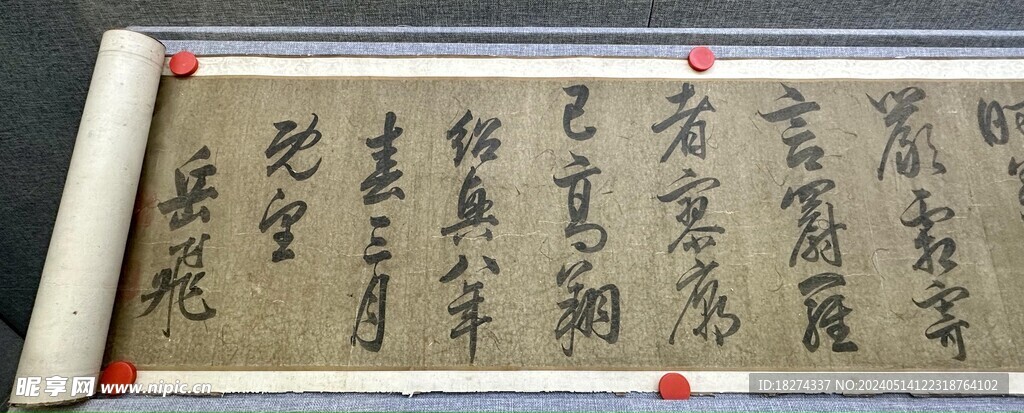 嚴霜寄
言罻羅
者寥廓
已高翔
紹興八年
春三月
既望
岳飛
昵享网 www.nipic.cn
ID:18274337 NO:20240514122318764102